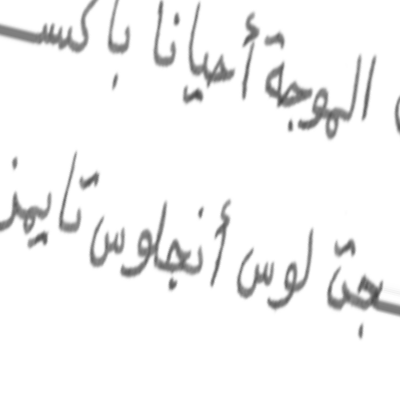 الهوجة أحيانا باكســ
ـجت لوس أنجلوس تايمز